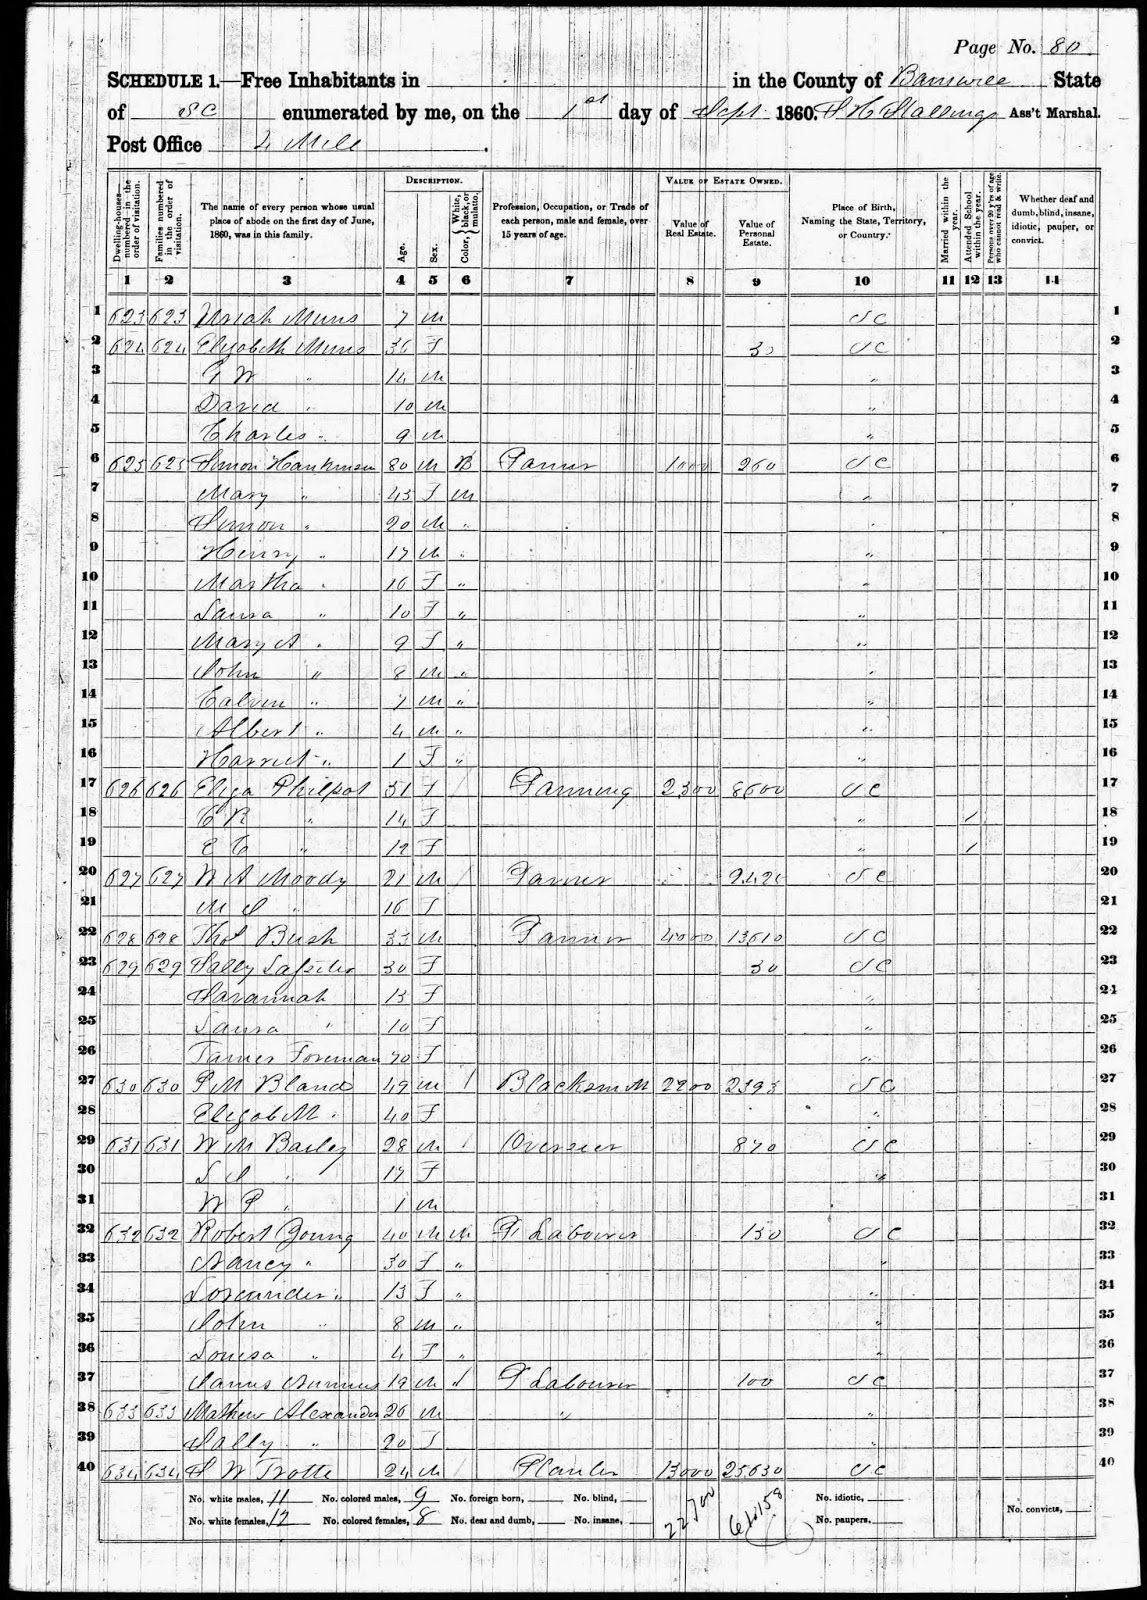 Page No. 80
SCHEDULE 1.—Free Inhabitants in in the County of Barnwell State
of SC enumerated by me, on the 1st day of Sept. 1860. Ass't Marshal.
Post Office 4 Mile
DESCRIPTION. VALUE OF ESTATE OWNED.
Dwelling-houses—numbered in the order of visitation. Families numbered in the order of visitation. The name of every person whose usual place of abode on the first day of June, 1860, was in this family. Age. Sex. Color, {White, black, or mulatto. Profession, Occupation, or Trade of each person, male and female, over 15 years of age. Value of Real Estate. Value of Personal Estate. Place of Birth, Naming the State, Territory, or Country. Married within the year. Attended School within the year. Persons over 20 y'rs of age who cannot read & write. Whether deaf and dumb, blind, insane, idiotic, pauper, or convict.
1 2 3 4 5 6 7 8 9 10 11 12 13 14
1 623 623 7 M SC 1
2 624 624 Elizabeth 36 F 30 SC 2
3 G W " 14 M " 3
4 David " 10 M " 4
5 Charles " 9 M " 5
6 625 625 Simon 80 M B Farmer 1000 260 SC 6
7 Mary " 43 F M " 7
8 Simon " 20 M " " 8
9 Henry " 17 M " " 9
10 Martha " 16 F " " 10
11 Laura " 10 F " " 11
12 Mary A " 9 F " " 12
13 John " 8 M " " 13
14 Calvin " 7 M " " 14
15 Albert " 4 M " " 15
16 Harriet " 1 F " " 16
17 626 626 Eliza Philpot 51 F / Farming 2300 8600 SC 17
18 " 14 F " / 18
19 " 12 F " / 19
20 627 627 W A Moody 21 M / Farmer SC 20
21 " 16 F 21
22 628 628 Thos Bush 33 M Farmer 4000 13610 SC 22
23 629 629 Sally 30 F 30 SC 23
24 Savannah 13 F " 24
25 Laura " 10 F " 25
26 Foreman 70 F " 26
27 630 630 Bland 49 M / Blacksmith 2200 2393 SC 27
28 Elizabeth " 40 F " 28
29 631 631 W M Bailey 28 M / Overseer 870 SC 29
30 " 17 F " 30
31 W P " 1 M 31
32 632 632 Robert Young 40 M M F Labourer 130 SC 32
33 Nancy " 30 F " " 33
34 " 13 F " " 34
35 John " 8 M " " 35
36 Louisa " 4 F " " 36
37 James 19 M F Labourer 100 SC 37
38 633 633 Mathew Alexander 26 M " " 38
39 Sally " 20 F " 39
40 634 634 S W Trotte 24 M / Planter 13000 25630 SC 40
No. white males, 11 No. colored males, 9 No. foreign born, No. blind, 22700 No. idiotic, No. convicts,
No. white females, 12 No. colored females, 8 No. deaf and dumb, No. insane, No. paupers,